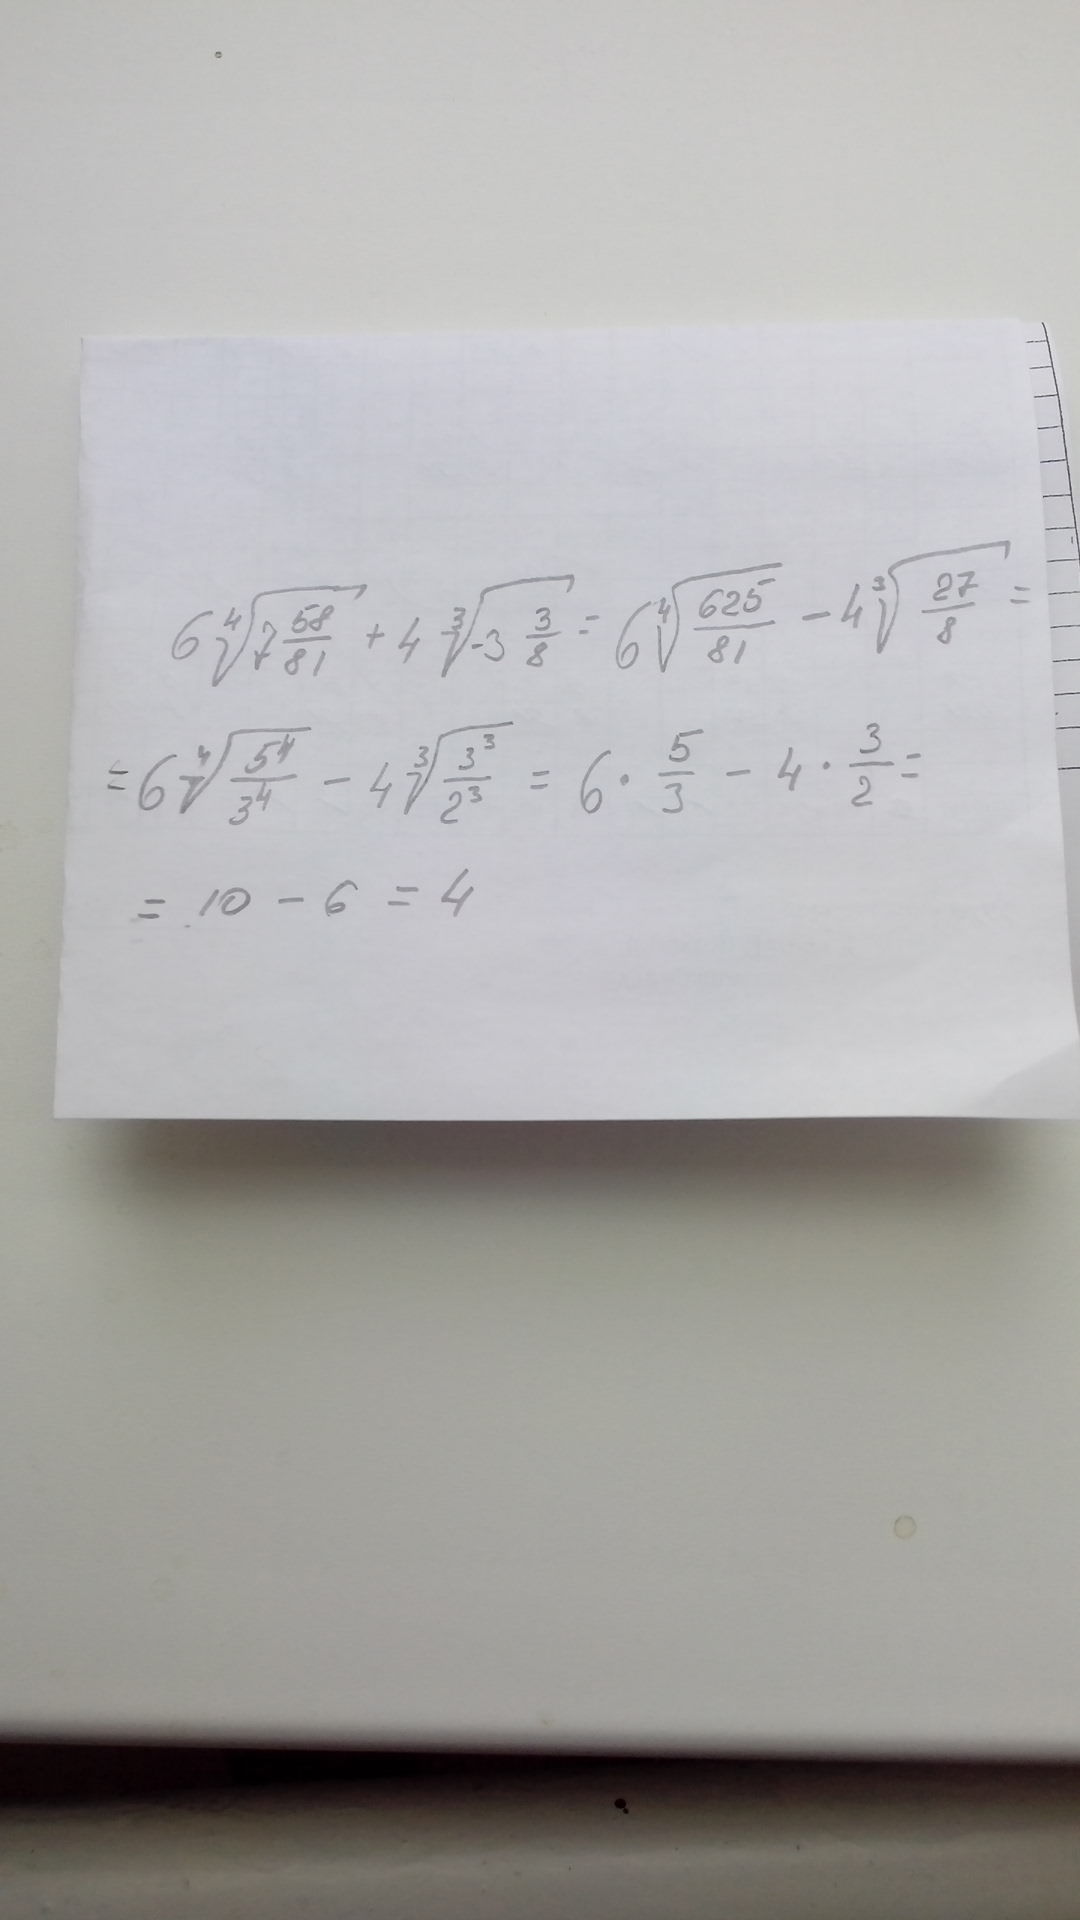 6∜(7 58/81) + 4∛(-3 3/8) = 6∜(625/81) - 4∛(27/8) =
= 6∜(5⁴/3⁴) - 4∛(3³/2³) = 6 · 5/3 - 4 · 3/2 =
= 10 - 6 = 4